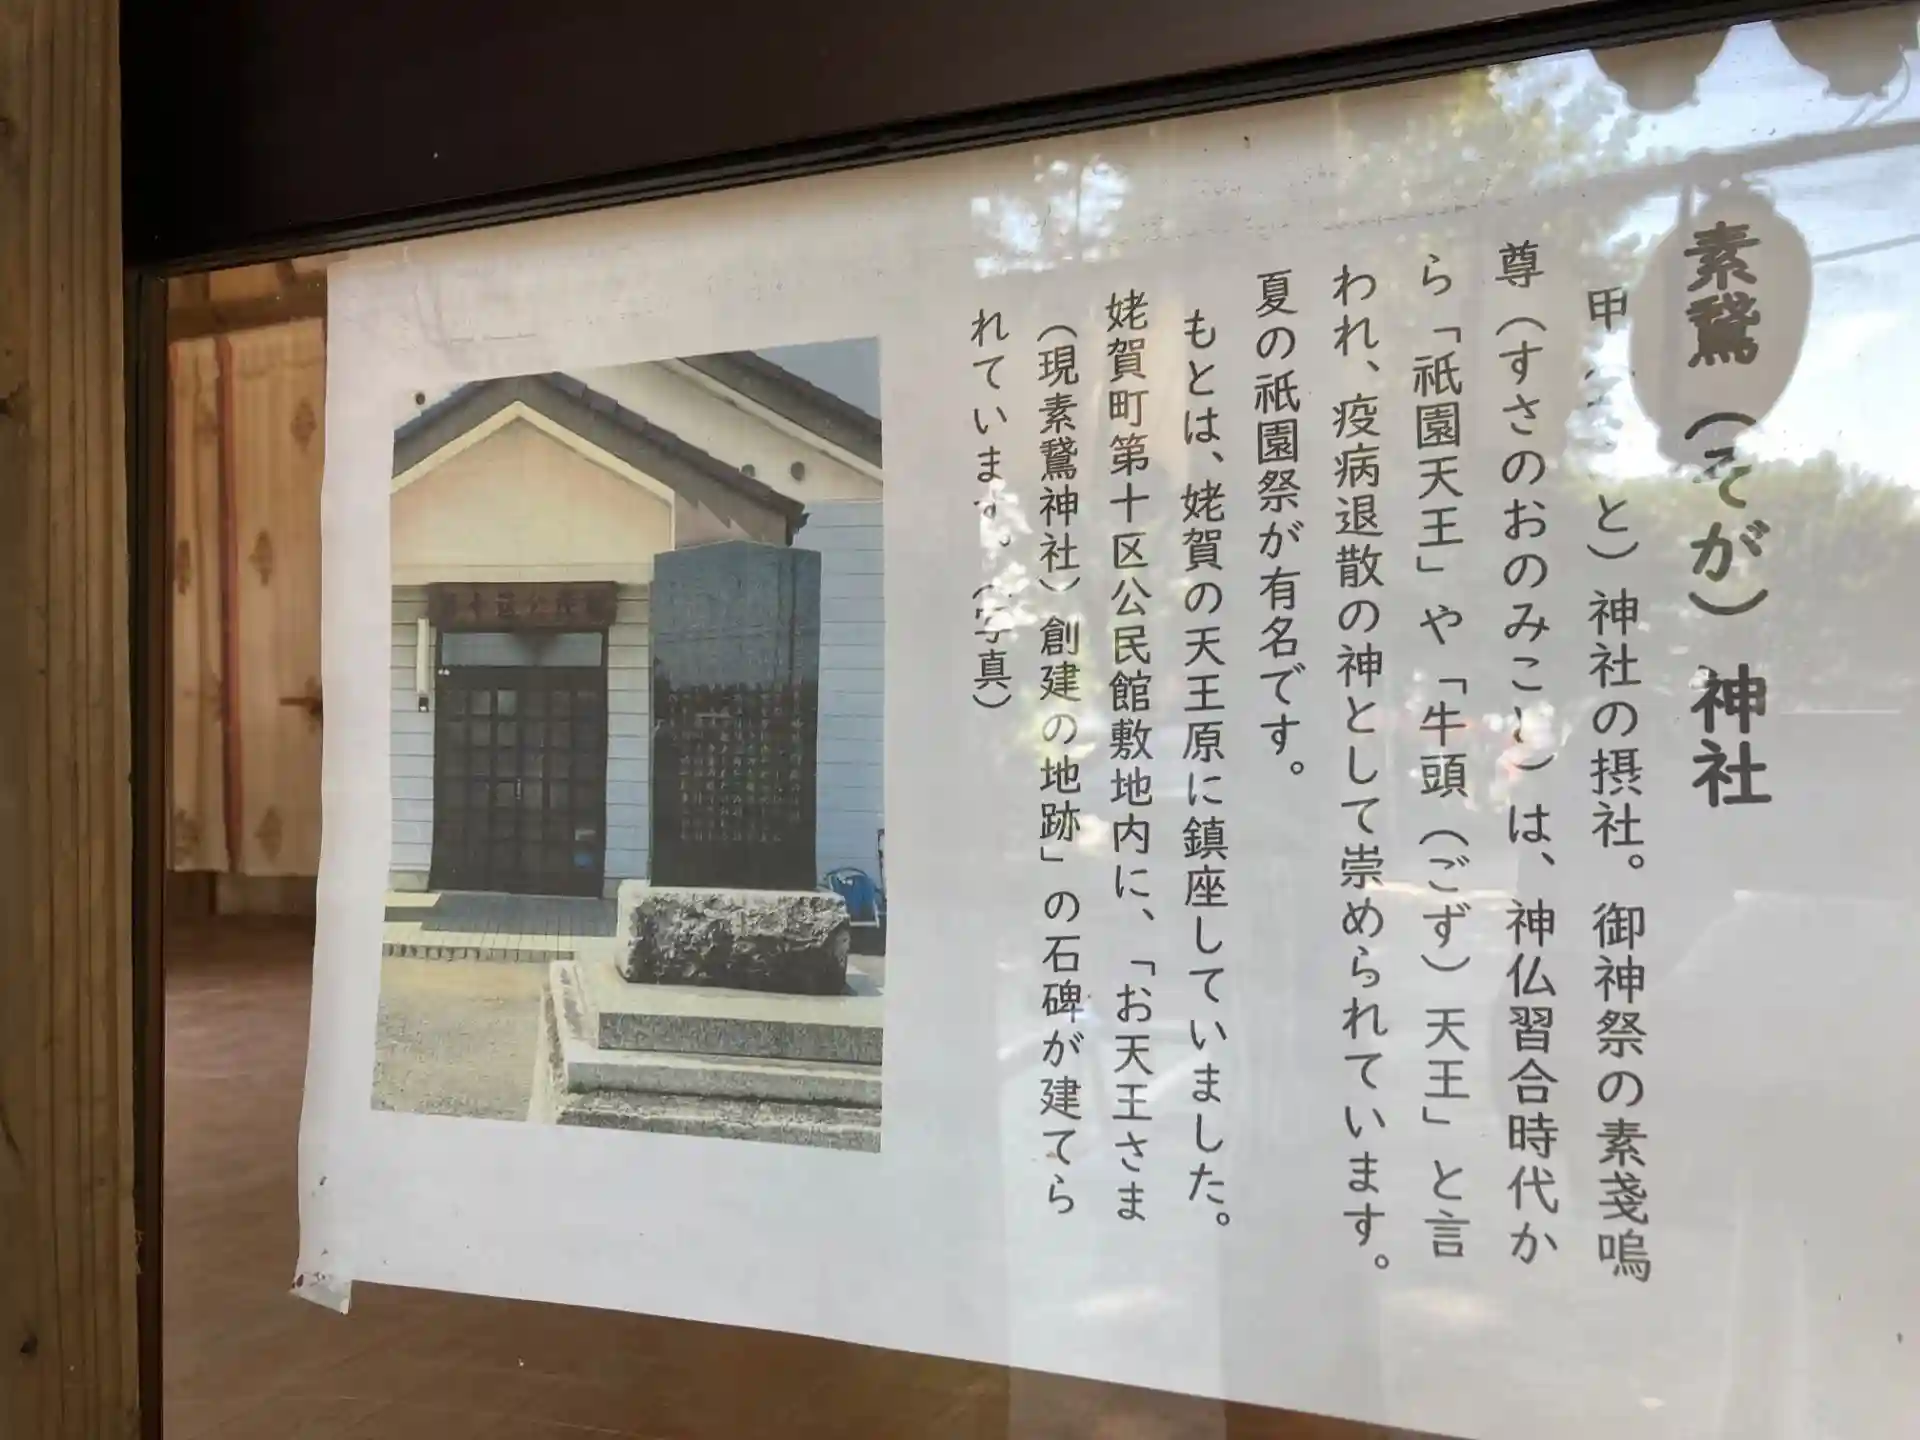 素鵞（そが）神社
甲 と）神社の摂社。御神祭の素戔嗚
尊（すさのおのみこと）は、神仏習合時代か
ら「祇園天王」や「牛頭（ごず）天王」と言
われ、疫病退散の神として崇められています。
夏の祇園祭が有名です。
もとは、姥賀の天王原に鎮座していました。
姥賀町第十区公民館敷地内に、「お天王さま
（現素鵞神社）創建の地跡」の石碑が建てら
れています。（写真）